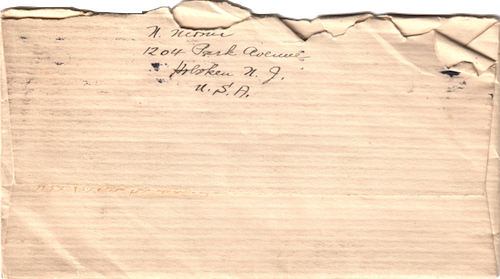 N.
1204 Park Avenue
Hoboken N. J.
U. S. A.